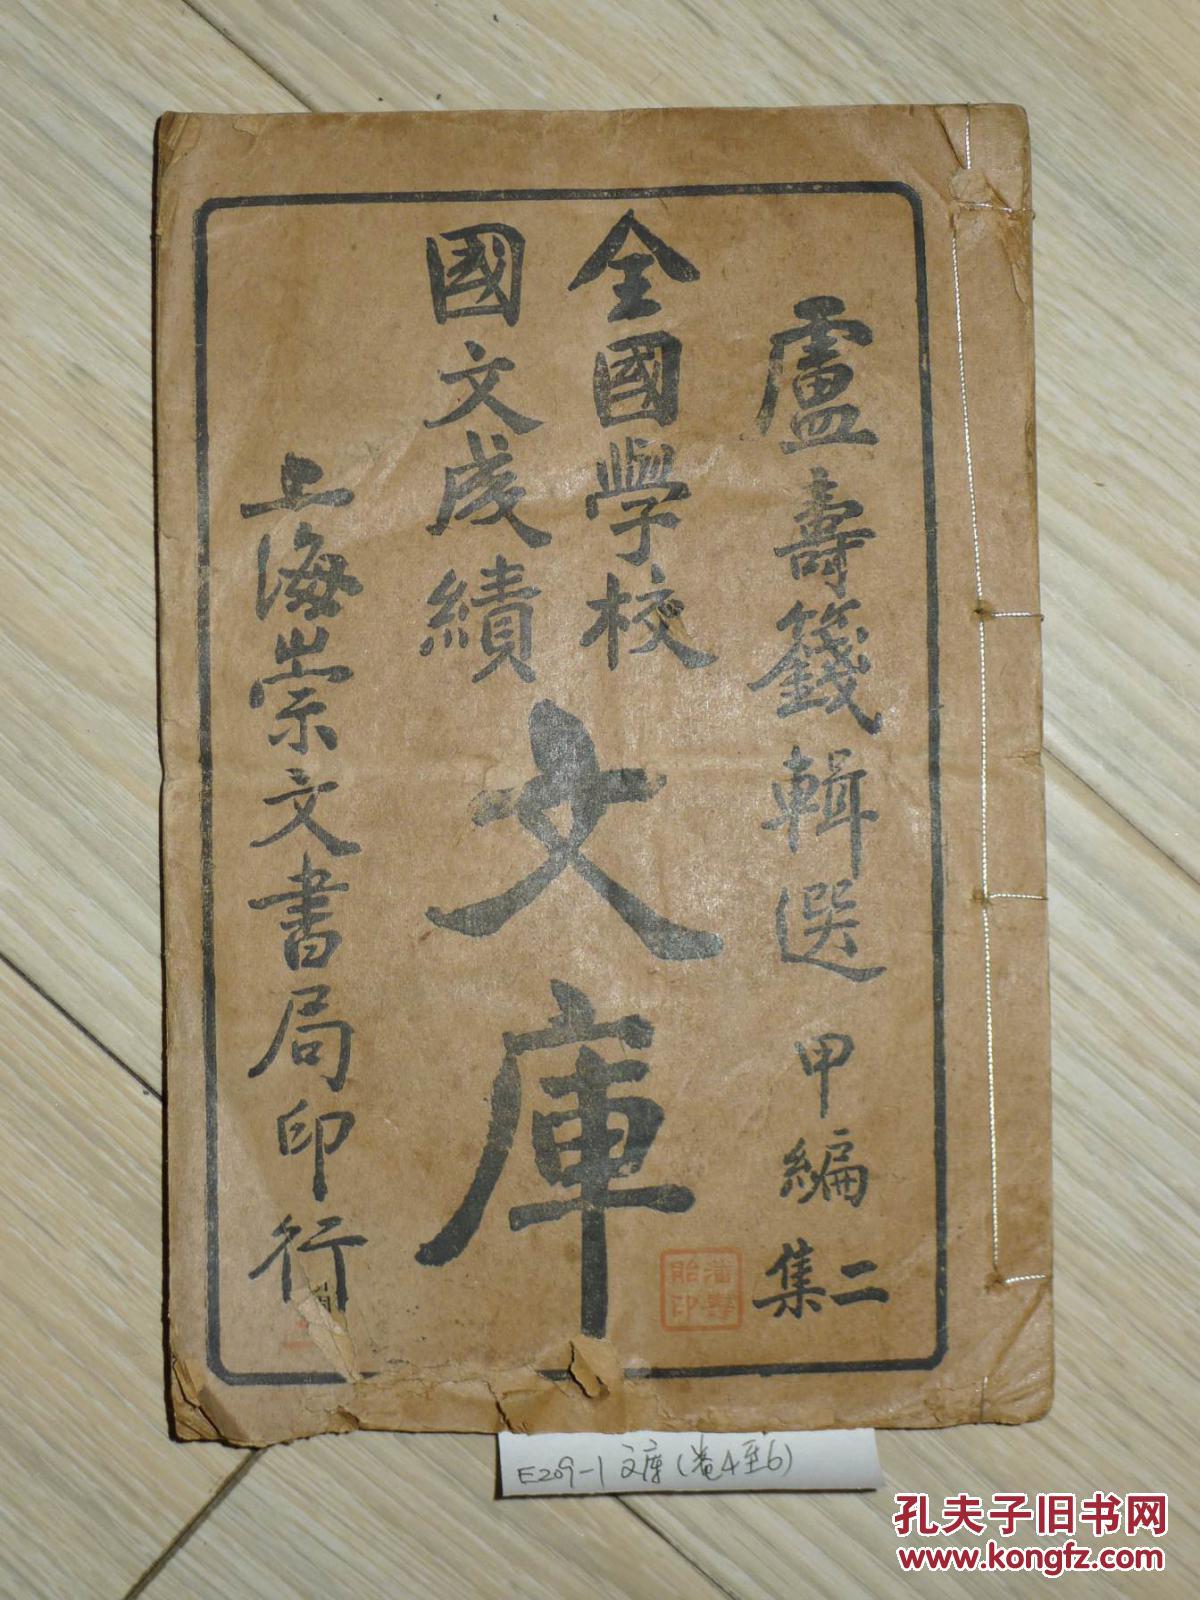 盧壽籛輯選 甲編
二集
全國學校
國文成績
文庫
上海崇文書局印行
E209-1 文庫(卷4至6)
孔夫子旧书网
www.kongfz.com